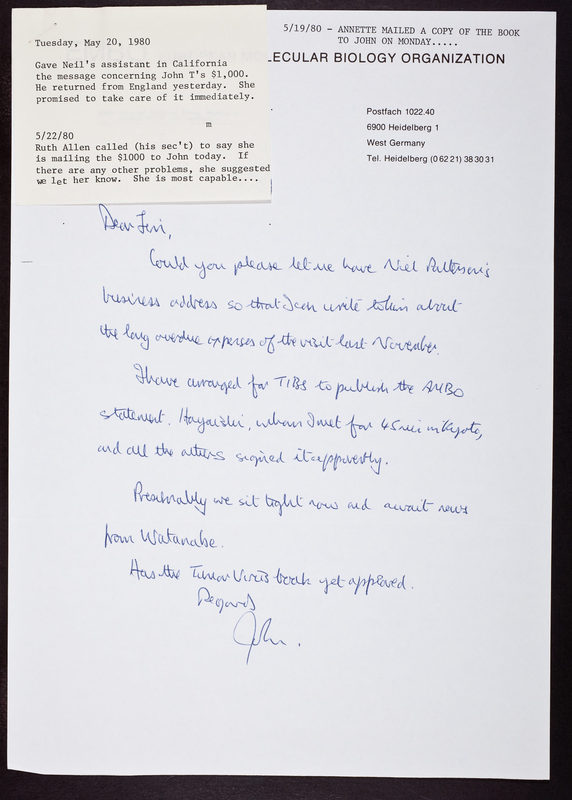 Tuesday, May 20, 1980
Gave Neil's assistant in California
the message concerning John T's $1,000.
He returned from England yesterday. She
promised to take care of it immediately.
m
5/22/80
Ruth Allen called (his sec't) to say she
is mailing the $1000 to John today. If
there are any other problems, she suggested
we let her know. She is most capable....
5/19/80 - ANNETTE MAILED A COPY OF THE BOOK
TO JOHN ON MONDAY.....
LECULAR BIOLOGY ORGANIZATION
Postfach 1022.40
6900 Heidelberg 1
West Germany
Tel. Heidelberg (0 62 21) 38 30 31
Dear Jim,
Could you please let me have Niel Patterson's
business address so that I can write to him about
the long overdue expenses of the visit last November.
I have arranged for TIBS to publish the AMBO
statement. Hayaishi, whom I met for 45 min in Kyoto,
and all the others signed it apparently.
Presumably we sit tight now and await news
from Watanabe.
Has the Tumor Virus book yet appeared.
Regards
John.